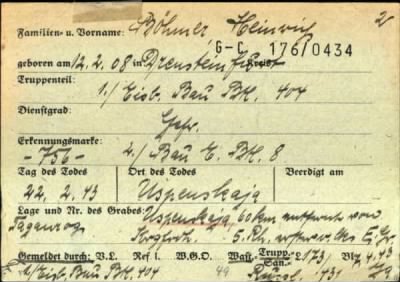 Familien- u. Vorname: Böhmer Heinrich 2
G-C 176/0434
geboren am 12.2.08 in Drensteinfurt Kreis
Truppenteil: 1./ Eisb. Bau Btl. 404
Dienstgrad: Gefr.
Erkennungsmarke:
-756- 2./ Bau E. Btl. 8
Tag des Todes Ort des Todes Beerdigt am
22.2.43 Uspenskaja
Lage und Nr. des Grabes: Uspenskaja, 60 km von
Taganrog 5. Rh.
Gemeldet durch: V.L. Ref I. W.G.O. Wast. Trupp. San. L 173/ Blz 4.43
1/Eisb. Bau Btl. 404 49 731